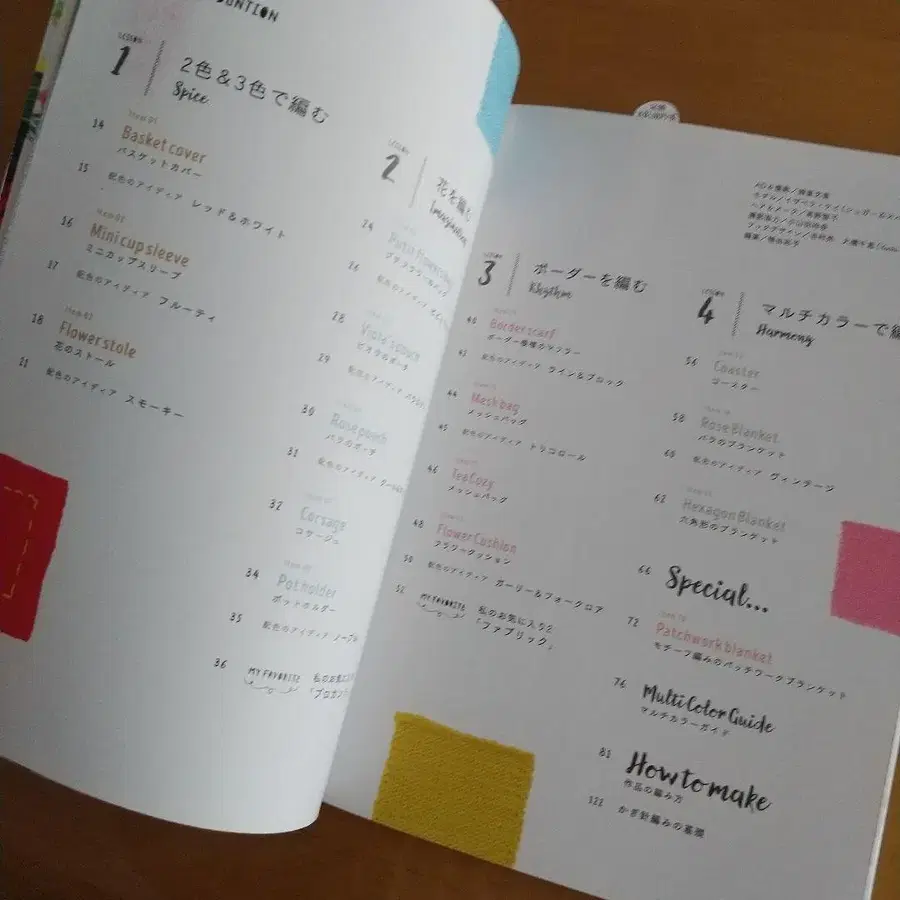 LESSON
1
2色&3色で編む
Spice
14
Item 01
Basket cover
バスケットカバー
15 配色のアイディア レッド&ホワイト
16
Item 02
Mini cup sleeve
ミニカップスリーブ
17 配色のアイディア フルーティ
18
Item 03
Flower stole
花のストール
21 配色のアイディア スモーキー
LESSON
2
花を編む
Imagination
24
26 配色のアイディア
28
Viola's pouch
ビオラのポーチ
29 配色のアイディア
30
Rose pouch
バラのポーチ
31 配色のアイディア
32
Corsage
コサージュ
34
Pot holder
ポットホルダー
35 配色のアイディア
36 MY FAVORITE 私のお気に入り
LESSON
3
ボーダーを編む
Rhythm
40
Border scarf
ボーダー模様のマフラー
42 配色のアイディア ライン&ブロック
44
Mesh bag
メッシュバッグ
45 配色のアイディア トリコロール
46
Tea Cozy
メッシュバッグ
48
Flower Cushion
フラワークッション
50 配色のアイディア ガーリー&フォークロア
52 MY FAVORITE 私のお気に入り2
「ファブリック」
LESSON
4
マルチカラーで編
Harmony
56
Coaster
コースター
58
Rose Blanket
バラのブランケット
60 配色のアイディア ヴィンテージ
62
Hexagon Blanket
六角形のブランケット
66 Special...
72
Patchwork blanket
モチーフ編みのパッチワークブランケット
76 Multi Color Guide
マルチカラーガイド
81 How to make
作品の編み方
122 かぎ針編みの基礎